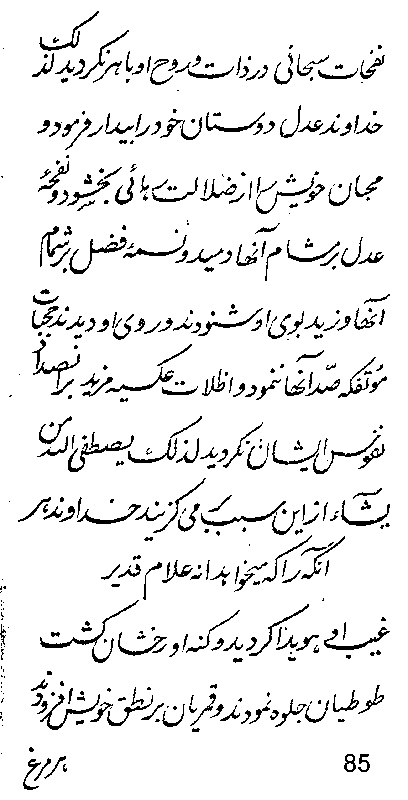 نفحات سبحانی در ذات و روح او باهر نگردید لذلک
خداوند عدل دوستان خود را بیدار فرمود و
محبان خویش را از ضلالت رهائی بخشود و نفحهٔ
عدل بر مشام آنها دمید و نسمهٔ فضل بر شمام
آنها وزید بوی او شنودند و روی او دیدند حجبات
مؤتفکه صدّ آنها ننمود و اظلات عکسیه مزید بر
نفوس ایشان نگردید لذلک یصطفی الله من
یشآء از این سبب بر می گزیند خداوند هر
آنکه را که میخواهد انه علام قدیر
غیب او هویدا گردید و کنه او رخشان گشت
طوطیان جلوه نمودند و قمریان بر نطق خویش افزودند
هر مرغ
85